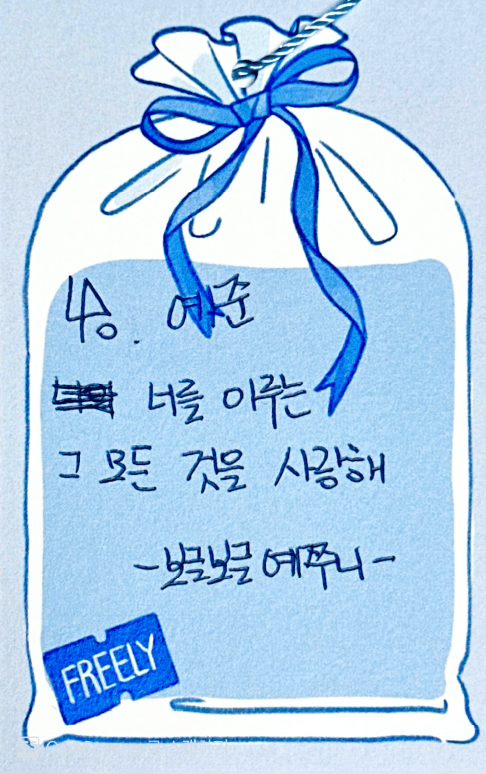 예준
너를 이루는
그 모든 것을 사랑해
-보글보글 예쭈니-
FREELY